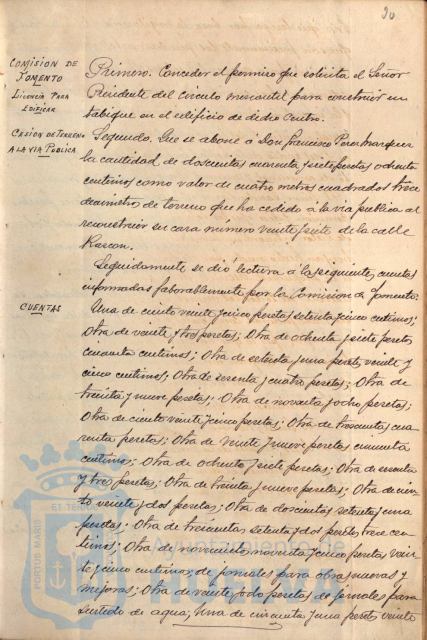 20
COMISION DE
FOMENTO
LICENCIA PARA
EDIFICAR
CESION DE TERRENO
A LA VIA PUBLICA
CUENTAS
Primero. Conceder el permiso que solicita el Señor
Presidente del Circulo mercantil para construir un
tabique en el edificio de dicho Centro.
Segundo. Que se abone á Don Francisco Perez Marquez
la cantidad de doscientas cuarenta y siete pesetas ochenta
centimos como valor de cuatro metros cuadrados trece
decimetros de terreno que ha cedido á la via publica al
reconstruir su casa número veinte y siete de la calle
Rascon.
Seguidamente se dió lectura á las siguientes cuentas
informadas faborablemente por la Comision de Fomento.
Una de ciento veinte y cinco pesetas setenta y cinco centimos;
Otra de veinte y tres pesetas; Otra de ochenta y siete pesetas
cincuenta centimos; Otra de setenta y una pesetas veinte y
cinco centimos; Otra de sesenta y cuatro pesetas; Otra de
treinta y nueve pesetas; Otra de noventa y ocho pesetas;
Otra de ciento veinte y cinco pesetas; Otra de trescientas cua
renta pesetas; Otra de veinte y nueve pesetas cincuenta
centimos; Otra de ochenta y siete pesetas; Otra de sesenta
y tres pesetas; Otra de treinta y nueve pesetas; Otra de cien
to veinte y dos pesetas; Otra de doscientas setenta y una
pesetas; Otra de trescientas setenta y dos pesetas trece cen
timos; Otra de novecientas noventa y cinco pesetas vein
te y cinco centimos de jornales para obras nuevas y
mejoras; Otra de veinte y ocho pesetas de jornales para
surtido de agua; Una de cincuenta y una pesetas veinte
PORTUS MARIS
ET TERRAE
Ayuntamiento de